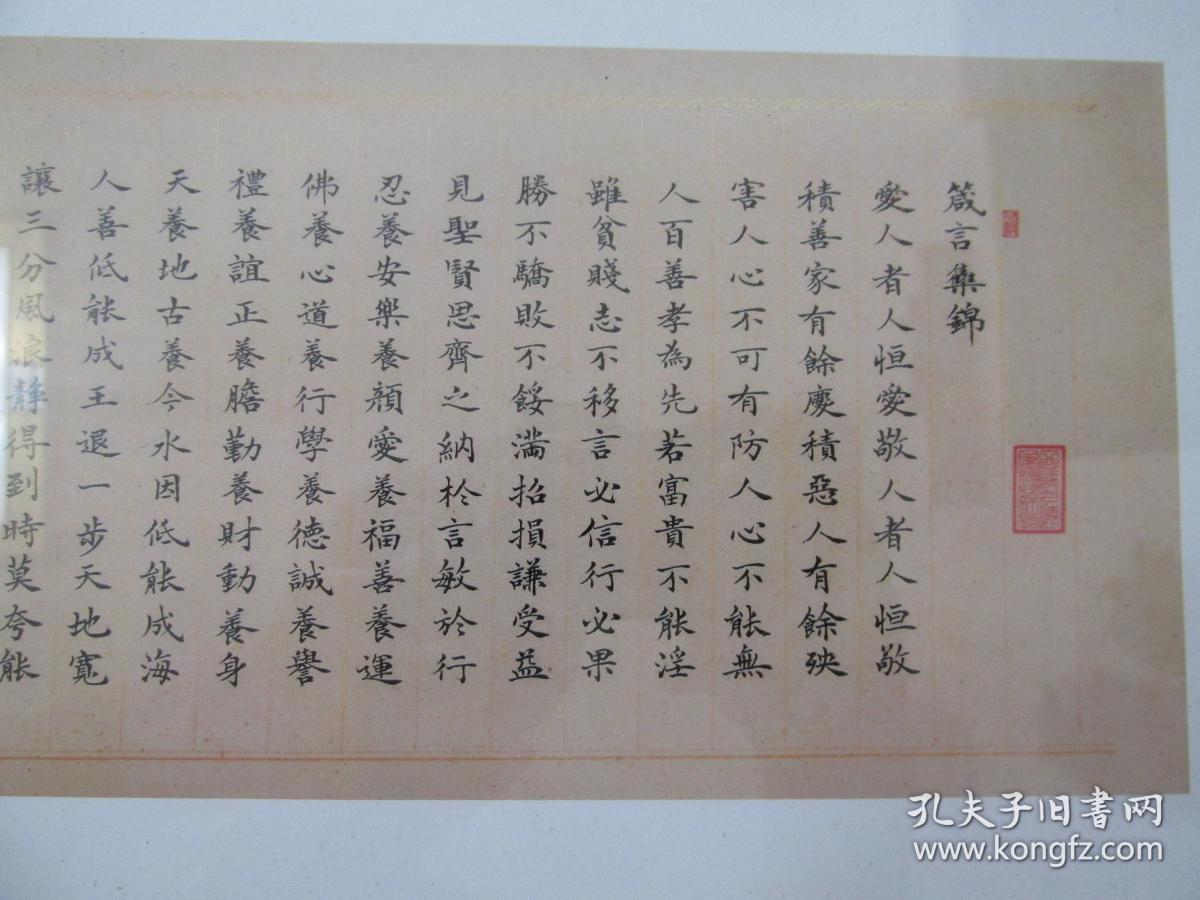 箴言集錦
愛人者人恒愛敬人者人恒敬
積善家有餘慶積惡人有餘殃
害人心不可有防人心不能無
人百善孝為先若富貴不能淫
雖貧賤志不移言必信行必果
勝不驕敗不餒滿招損謙受益
見聖賢思齊之納於言敏於行
忍養安樂養顏愛養福善養運
佛養心道養行學養德誠養譽
禮養誼正養膽勤養財動養身
天養地古養今水因低能成海
人善低能成王退一步天地寬
讓三分風浪靜得到時莫夸能
孔夫子旧书网
www.kongfz.com